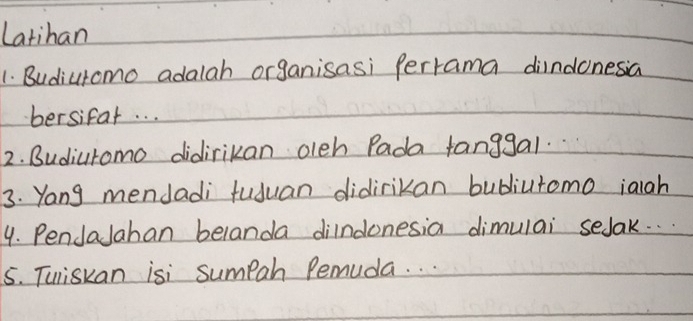 Latihan
1. Budiutomo adalah organisasi Pertama diindonesia
bersifat ...
2. Budiutomo didirikan oleh Pada tanggal ...
3. Yang menJadi tuJuan didirikan bubliutomo ialah
4. PenJaJahan belanda diIndonesia dimulai seJak ...
5. Tuliskan isi sumPah Pemuda ...